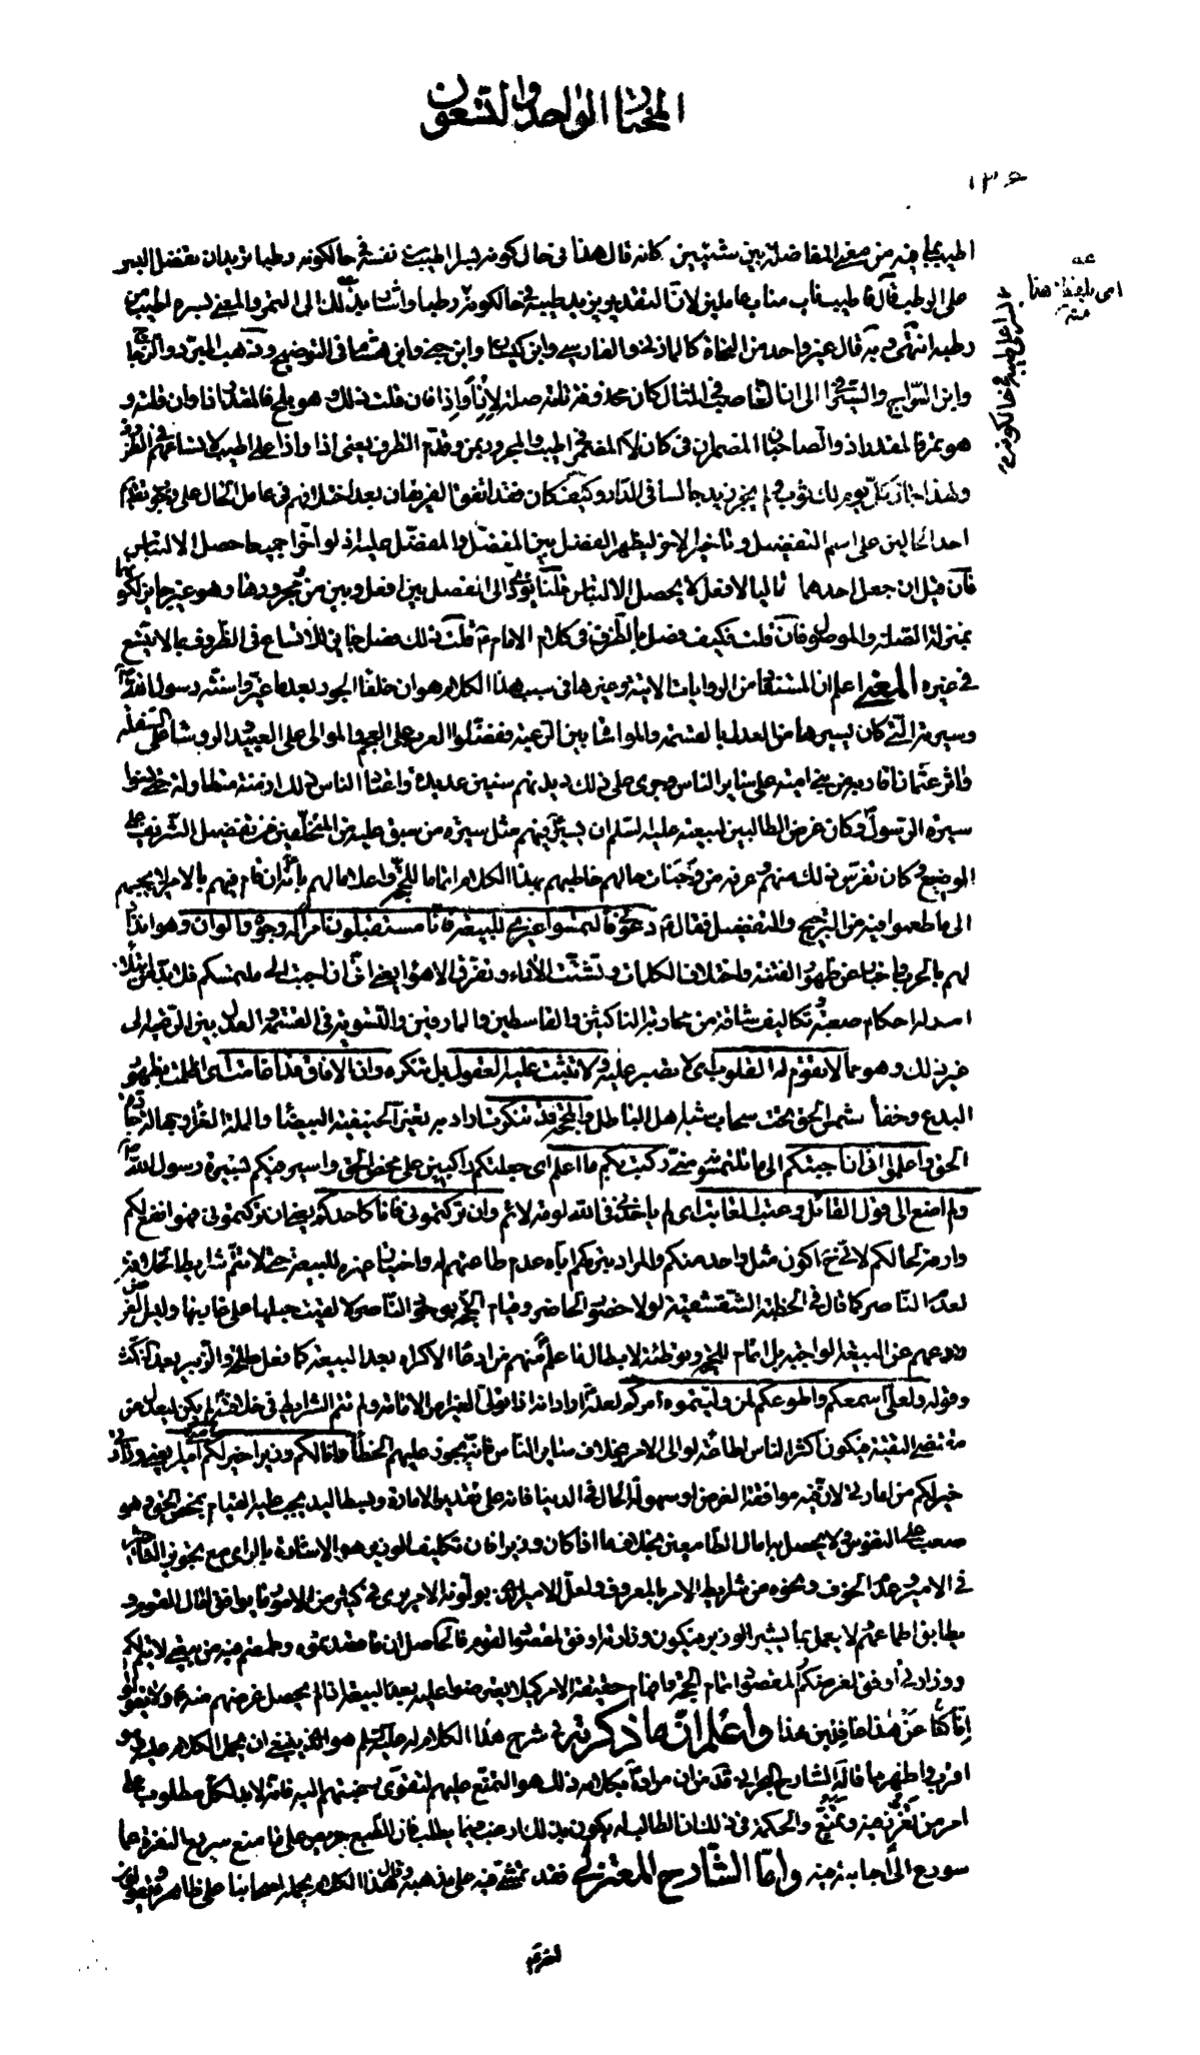 المختار الواحد والتسعون
١٣٦
اطيب لما فيه من معنى المفاضلة بين شيئين كانه قال هذا في حال كونه بسرا اطيب من نفسه في حال كونه رطبا تريدان تفضل البسر
على الرطب قال فاطيب ناب مناب عاملين لان التقدير يزيد طيبه في حال كونه رطبا واشار بذلك الى التمر والمعنى بسره اطيب من
رطبه انتهى وبه قال غير واحد من النحاة كالمازني والفارسي وابن كيسان وابن جني وابن هشام في التوضيح وذهب المبرد والزجاج
وابن السراج والسيرافي الى ان الناصب في المثال كان محذوفة تامة صلة لاذ او اذا فان قلت ذلك وهو بلح فالمقدر اذا وان قلته و
هو تمر فالمقدر اذ والصاحبان المضمران في كان لا المضمر في اطيب والمجرور بمن وقدم الظرف يعني اذ واذا على اطيب لاتساعهم في الظروف
ولهذا جاز كل يوم لك ثوب ولم يجز زيد جالسا في الدار وكيف كان فقد اتفق الفريقان بعد اختلافهم في عامل الحال على وجوب تقديم
احد الحالين على اسم التفضيل وتاخير الاخر ليظهر الفضل بين المفضل والمفضل عليه اذ لو اخرا جميعا حصل الالتباس
فان قيل ان جعل احدهما تاليا لافعل لا يحصل الالتباس قلنا يؤدي الى الفصل بين افعل وبين من ومجرورها وهو غير جايز لكونهما
بمنزلة الصلة والموصول فان قلت فكيف فصل بالظرف في كلام الامام قلت ذلك فصل جايز للاتساع في الظروف ما لا يتسع
في غيره المعنى اعلم ان المستفاد من الروايات الاتية وغيرها في سبب هذا الكلام هو ان خلفاء الجور بعد ما غيروا سنة رسول الله
وسيرته التي كان يسيرها من العدل بالقسمة والمواساة بين الرعية ففضلوا العرب على العجم والموالي على العبيد والرؤساء على السفلة
واثر عثمان اقاربه من بني امية على ساير الناس وجرى على ذلك ديدنهم سنين عديدة واعتاد الناس ذلك ازمنة متطاولة حتى نسوا
سيرة الرسول وكان غرض الطالبين لبيعته عليه السلام ان يسير فيهم مثل سيرة من سبق عليه من المتخلفين من تفضيل الشريف على
الوضيع وكان تفرس ذلك منهم وعرفه من وجنات حالهم خاطبهم بهذا الكلام اتماما للحجة واعلاما لهم بانه ان قام فيهم بالامر لا يجيبهم
الى ما طمعوا فيه من الترجيح والتفضيل فقال دعوني والتمسوا غيري للبيعة فانا مستقبلون امرا له وجوه والوان وهو انذار
لهم بالحرب واخبار عن ظهور الفتنة واختلاف الكلمات وتشتت الآراء وتفرق الاهواء يعني اني ان اجبت الى ملتمسكم فلا بد من ابتلاء
اصدار احكام صعبة وتكاليف شاقة من محاربة الناكثين والقاسطين والمارقين والتسوية في القسمة والعدل بين الرعية الى
غير ذلك وهو مما لا تقوم له القلوب اي لا تصبر عليه ولا تثبت عليه العقول بل تنكره وان الافاق قد اغامت اي اظلمت بظهور
البدع وخفاء شمس الحق تحت سحاب شبه اهل الباطل والمحجة قد تنكرت اراد به تغير الحنيفية البيضاء والملة الغراء وجهالة جادة
الحق واعلموا اني ان اجبتكم الى ما تلتمسونه مني ركبت بكم ما اعلم اي جعلتكم راكبين على محض الحق واسير فيكم بسيرة رسول الله
ولم اصغ الى قول القائل وعتب العاتب اي لم ياخذني في الله لومة لائم وان تركتموني فانا كاحدكم يعني ان تركتموني فهو انفع لكم
وارفق لحالكم لاني ح اكون مثل واحد منكم والمراد بتركهم اياه عدم طاعتهم له واختيار غيره للبيعة حتى لا تتم شرايط الخلافة
لعدم الناصر كما قال في الخطبة الشقشقية لولا حضور الحاضر وقيام الحجة بوجود الناصر لالقيت حبلها على غاربها وليس الغرض
ردعهم عن البيعة الواجبة بل اتمام للحجة وتوطئة لابطال ما علم منهم من ادعاء الاكراه بعد البيعة كما فعل طلحة والزبير بعد النكث
وقوله ولعلي اسمعكم واطوعكم لمن وليتموه امركم لعله اراد انه اذا تولى الغير امر الامامة ولم تتم الشرايط في خلافته لم يكن ليعدل عن
مقتضى التقية فيكون اكثر الناس اطاعة لوالي الامر بخلاف ساير الناس فانه يجوز عليهم الخطأ وانا لكم وزيرا خير لكم اميرا يعني وزارتي
خير لكم من امارتي لان فيه موافقة الغرض او سهولة الحال في الدنيا فانه على تقدير الامارة وبسط اليد يجب عليه القيام بمحض الحق وهو
صعب على النفوس ولا يحصل به امال الطامعين بخلاف ما اذا كان وزيرا فان تكليف الوزير هو الاشارة بالراي مع تجويز التأثير
في الامير وعدم الخوف ونحوه من شرايط الامر بالمعروف ولعل الامير الذي يولونه الامر يرى في كثير من الامور ما يوافق امال القوم و
يطابق اطماعهم لا يعمل بما يشير الوزير فيكون وزارته اوفق لمقصود القوم فالحاصل ان ما قصدتموه وطمعتم فيه من بيعتي لا يتم لكم
ووزارتي اوفق لغرضكم المقصود اتمام الحجة وافهام حقيقة الامر كيلا يعترضوا عليه بعد البيعة اذا لم يحصل غرضهم منه ولا يقولوا
انا كنا عن هذا غافلين هذا واعلم ان ما ذكرته في شرح هذا الكلام له عليه السلم هو الذي ينبغي ان يحمل الكلام عليه وهو
اقرب واظهر مما قاله الشارح البحراني قده من ان مراده بكلامه ذلك هو التمنع عليهم لتقوى رغبتهم اليه فانه لا بد لكل مطلوب على
امر من تعزز فيه وتمنع والحكمة في ذلك ان الطالب له يكون بذلك ارغب فيما يطلب فان الطبع حريص على ما منع سريع النفرة عما
سورع الى اجابته فيه واما الشارح المعتزلي فقد تمشى فيه على مذهبه وقال هذا الكلام يحمله اصحابنا على ظاهره ويقولون